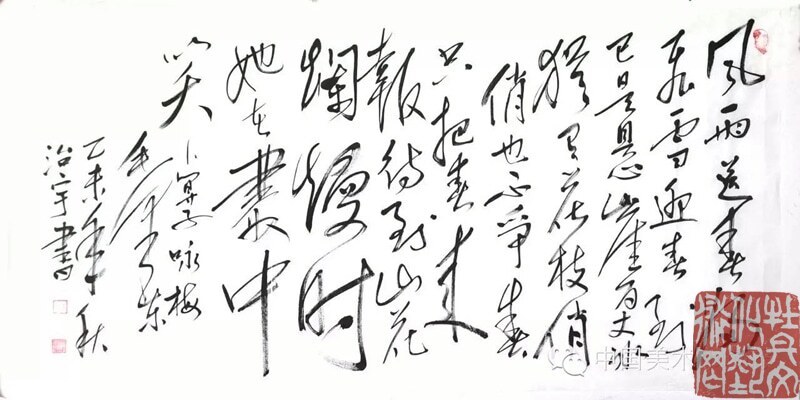 风雨送春归
飞雪迎春到
已是悬崖百丈冰
犹有花枝俏
俏也不争春
只把春来
報待到山花
爛熳时
她在叢中
笑
卜算子咏梅
毛泽东
乙未年秋
治宇書
中国美术